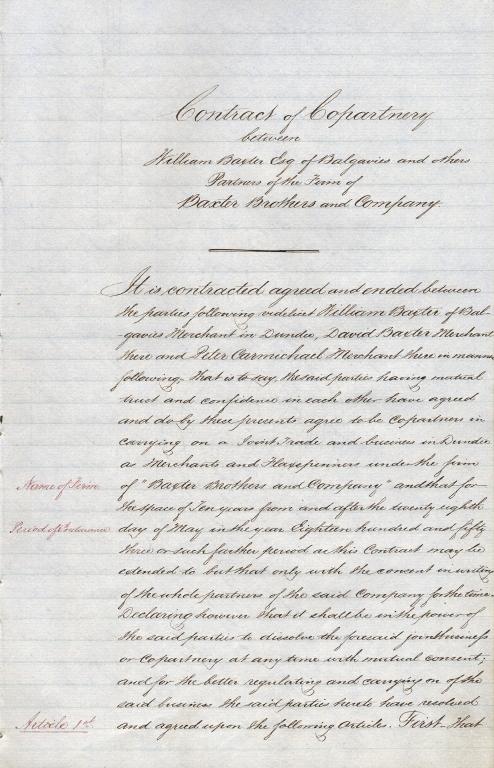 Contract of Copartnery
between
William Baxter Esq of Balgavies and others
Partners of the Firm of
Baxter Brothers and Company.
It is contracted agreed and ended between
the parties following videlicet William Baxter of Bal-
gavies Merchant in Dundee, David Baxter Merchant
there and Peter Carmichael Merchant there in manner
following, that is to say, the said parties having mutual
trust and confidence in each other have agreed
and do by these presents agree to be Copartners in
carrying on a Joint Trade and business in Dundee
as Merchants and Flaxspinners under the firm
Name of Firm
of "Baxter Brothers and Company" and that for
the space of Ten years from and after the twenty eighth
Period of Endurance
day of May in the year Eighteen hundred and fifty
three or such further period as this Contract may be
extended to but that only with the consent in writing
of the whole partners of the said Company for the time.
Declaring however that it shall be in the power of
the said parties to dissolve the foresaid joint business
or Copartnery at any time with mutual consent;
and for the better regulating and carrying on of the
said business the said parties hereto have resolved
Article 1st
and agreed upon the following Articles. First - That